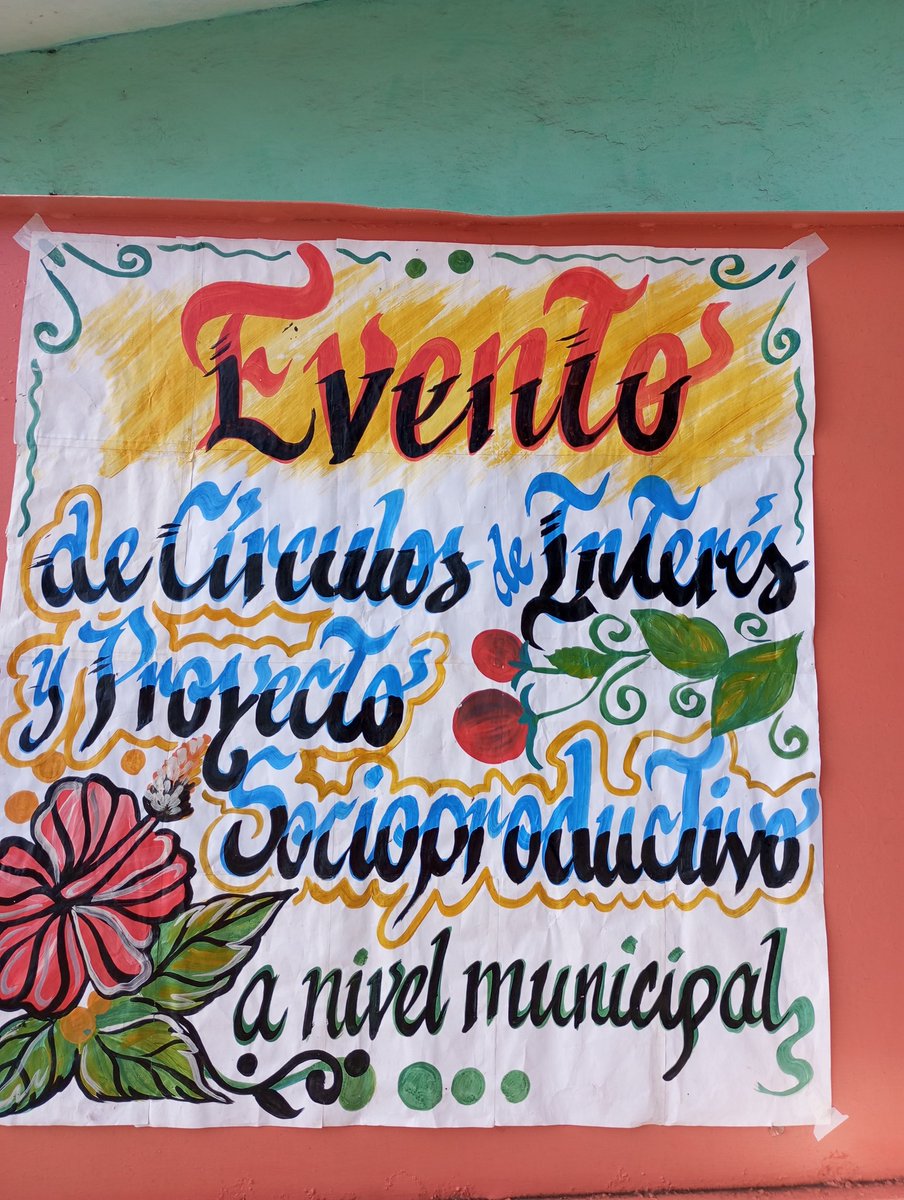 Evento
de Círculos de Interés
y Proyecto
Socioproductivo
a nivel municipal